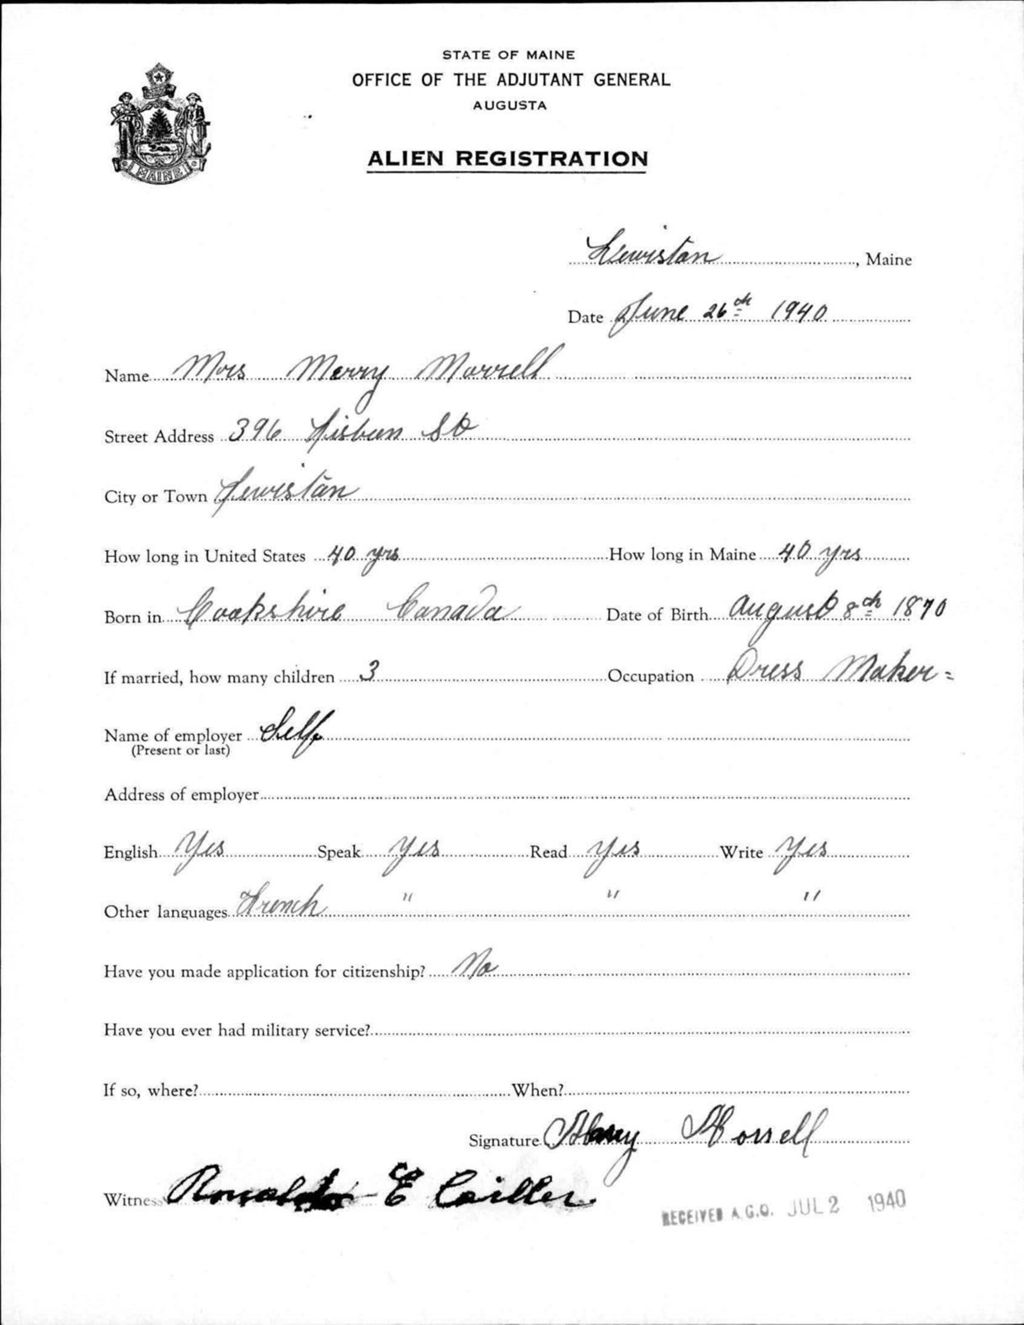 STATE OF MAINE
OFFICE OF THE ADJUTANT GENERAL
AUGUSTA
MAINE
ALIEN REGISTRATION
Lewiston, Maine
Date June 26th 1940
Name Mrs Merry Morrell
Street Address 396 Lisbon St
City or Town Lewiston
How long in United States 40 yrs How long in Maine 40 yrs
Born in Cookshire Canada Date of Birth August 8th 1870
If married, how many children 3 Occupation Dress Maker
Name of employer Self
(Present or last)
Address of employer
English Yes Speak Yes Read Yes Write Yes
Other languages French " " "
Have you made application for citizenship? No
Have you ever had military service?
If so, where? When?
Signature Morrell
Witness E
RECEIVED A.G.O. JUL 2 1940